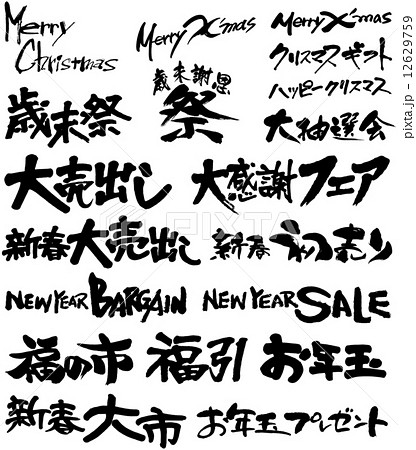 Merry Christmas
Merry X'mas
Merry X'mas
クリスマスギフト
ハッピークリスマス
歳末祭
歳末謝恩祭
大抽選会
大売出し
大感謝フェア
新春大売出し
新春初売り
NEW YEAR BARGAIN
NEW YEAR SALE
福の市
福引
お年玉
新春大市
お年玉プレゼント
PIXTA
pixta.jp - 12629759